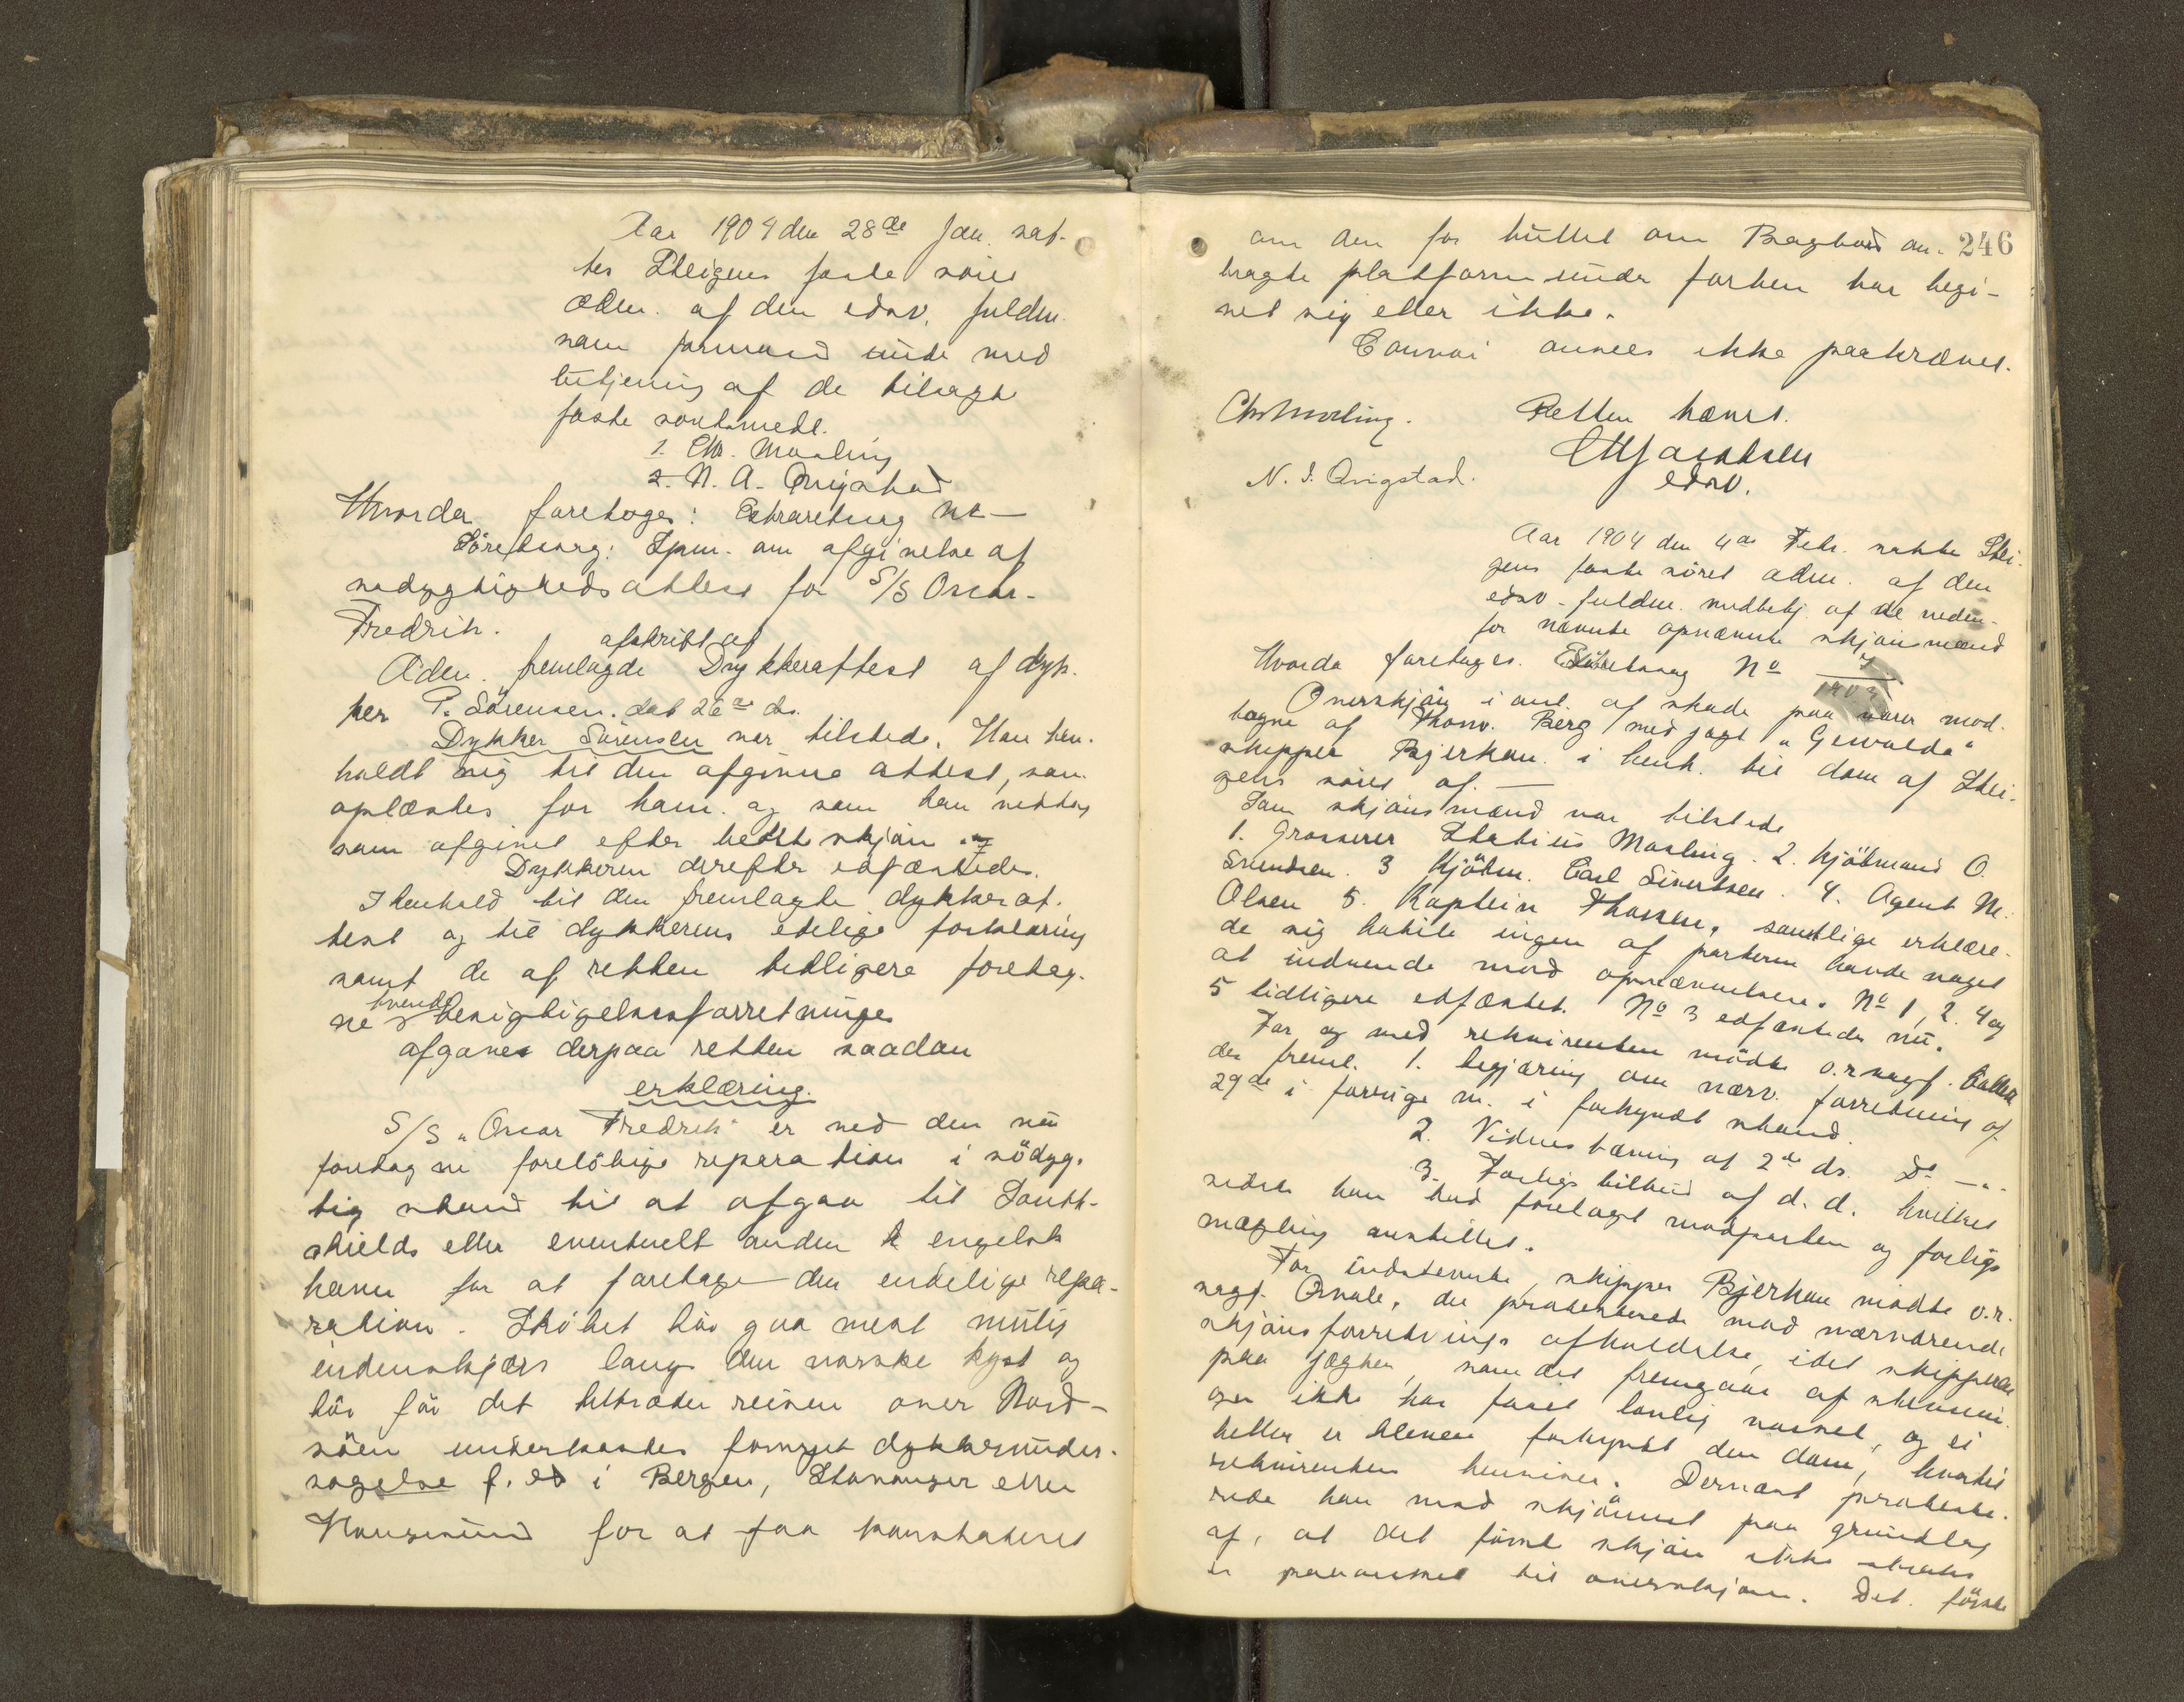 Aar 1904 den 28de Jan. sat-
tes Stleigens faste söret
adm. af den edsv. fuldm.
som formand ude med
betjening af de tilsagte
faste søretsmedl.
1. Chr. Maaling
2. N. A. Qvigstad
Hvorda foretoges: Extraretssag No —
Söretssag: Spm. om afgivelse af
sødygtighedsattest for S/S Oscar-
Fredrik.
afskrift af
Adm. fremlagde Dykkerattest af dyk-
ker P. Sörensen. dat 26de ds.
Dykker Sörensen var tilstede. Han hen-
holdt sig til den afgivne attest, som
oplæstes for ham og som han vedtog
som afgivet efter bedste skjön.
Dykkeren derefter edfæstedes.
I henhold til den fremlagte dykkerat-
test og til dykkerens edelige forklaring
samt de af retten tidligere foretag-
ne tvende besigtigelsesforretninger
afgaves derpaa retten saadan
erklæring.
S/S "Oscar Fredrik" er ved den nu
foretagne forelöbige reparation i södyg-
tig stand til at afgaa til South-
shields eller eventuelt anden engelsk
havn for at foretage den endelige repa-
ration. Skibet bör gaa mest mulig
indenskjærs langs den norske kyst og
bör før det tiltræder reisen over Nord-
söen underkastes fornyet dykkerunder-
søgelse f. ex i Bergen, Stavanger eller
Haugesund for at faa konstateret
246
om den for hullet om Bagbord an-
bragte platform under farten har begi-
vet sig eller ikke.
Convoi ansees ikke paakrævet.
Chr Maaling. Retten hævet.
CMJacobsen
N. I. Qvigstad. edsv.
Aar 1904 den 4de Febr. sattes Stlei-
gens faste söret adm. af den
edsv. fuldm. med betj. af de neden-
for nævnte opnævnte skjönsmænd
Hvorda foretoges. Söretssag No /1903
Overskjön i anl. af skade paa varer mod-
tagne af Thorv. Berg med jagt "Gewalda"
skipper Bjerkan i henh. til dom af Stlei-
gens söret af. —
Som skjönsmænd var tilstede
1. Grosserer Statius Maaling. 2. Kjöbmand O.
Svendsen. 3 Kjöbm. Carl Sivertsen. 4. Agent M.
Olsen 5. Kaptein Thossen, samtlige erklære-
de sig habile ingen af parterne havde noget
at indvende mod opnævnelsen. No 1, 2. 4 og
5 tidligere edfæstet. No 3 edfæstedes nu.
For og med rekvirenten mödte o.r.sagf.
der freml. 1. begjæring om nærv. forretning af
29de i forrige m. i forkyndt stand.
2. Vidnestævning af 2de ds. Do —"—
3. Forligstilbud af d. d. hvilket
sidste han lod forelagt modparten og forligs
mægling anstillet.
For indstevnte, skipper Bjerkan mödte o.r.
sagf. Qvale, der protesterede mod nærværende
skjönsforretnings afholdelse, idet skipperen
paa jægten, som det fremgaar af stevnin-
gen ikke har faaet lovlig varsel, og ei
heller er bleven forkyndt den dom, hvortil
rekvirenten henviser. Dernæst proteste-
rede han mod skjönnet paa grundlag
af, at det förste skjön ikke straks
er paaanket til overskjön. Det förste